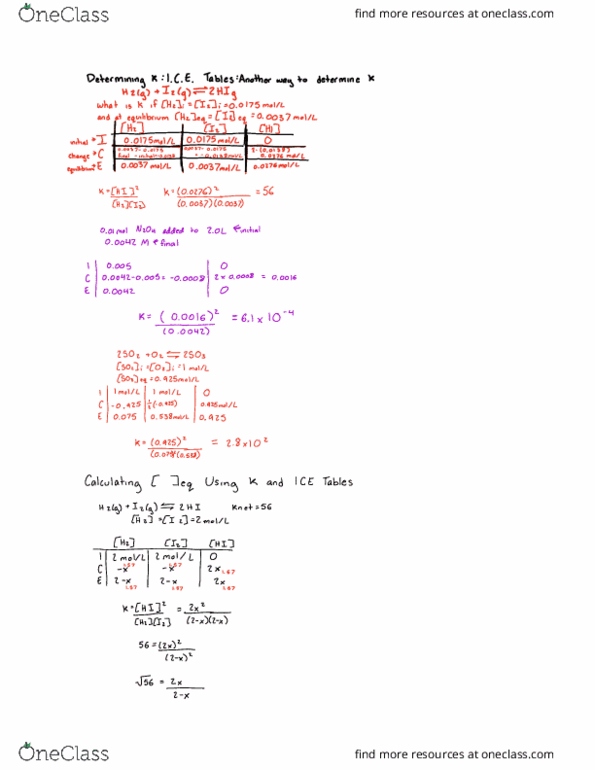 OneClass
find more resources at oneclass.com
Determining K: I.C.E. Tables: Another way to determine K
H2(g) + I2(g) ⇌ 2HIg
what is K if [H2]i = [I2]i = 0.0175 mol/L
and at equilibrium [H2]eq = [I]eq = 0.0037 mol/L
[H2] [I2] [HI]
initial I 0.0175 mol/L 0.0175 mol/L 0
change C
equilibrium E 0.0037 mol/L 0.0037 mol/L 0.0276 mol/L
K = [HI]² / [H2][I2] K = (0.0276)² / (0.0037)(0.0037) = 56
0.01 mol N2O4 added to 2.0L initial
0.0042 M final
I 0.005 0
C 0.0042-0.005 = -0.0008 2 x 0.0008 = 0.0016
E 0.0042 0
K = (0.0016)² / (0.0042) = 6.1 x 10⁻⁴
2SO2 + O2 ⇌ 2SO3
[SO2]i = [O2]i = 1 mol/L
[SO3]eq = 0.925 mol/L
I 1 mol/L 1 mol/L 0
C -0.925 ½(-0.925) 0.925 mol/L
E 0.075 0.538 mol/L 0.925
K = (0.925)² = 2.8 x 10²
Calculating [ ]eq Using K and ICE Tables
H2(g) + I2(g) ⇌ 2HI Knet = 56
[H2] = [I2] = 2 mol/L
[H2] [I2] [HI]
I 2 mol/L 2 mol/L 0
C -x -x 2x
E 2-x 2-x 2x
K = [HI]² / [H2][I2] = 2x² / (2-x)(2-x)
56 = (2x)² / (2-x)²
√56 = 2x / 2-x
OneClass
find more resources at oneclass.com